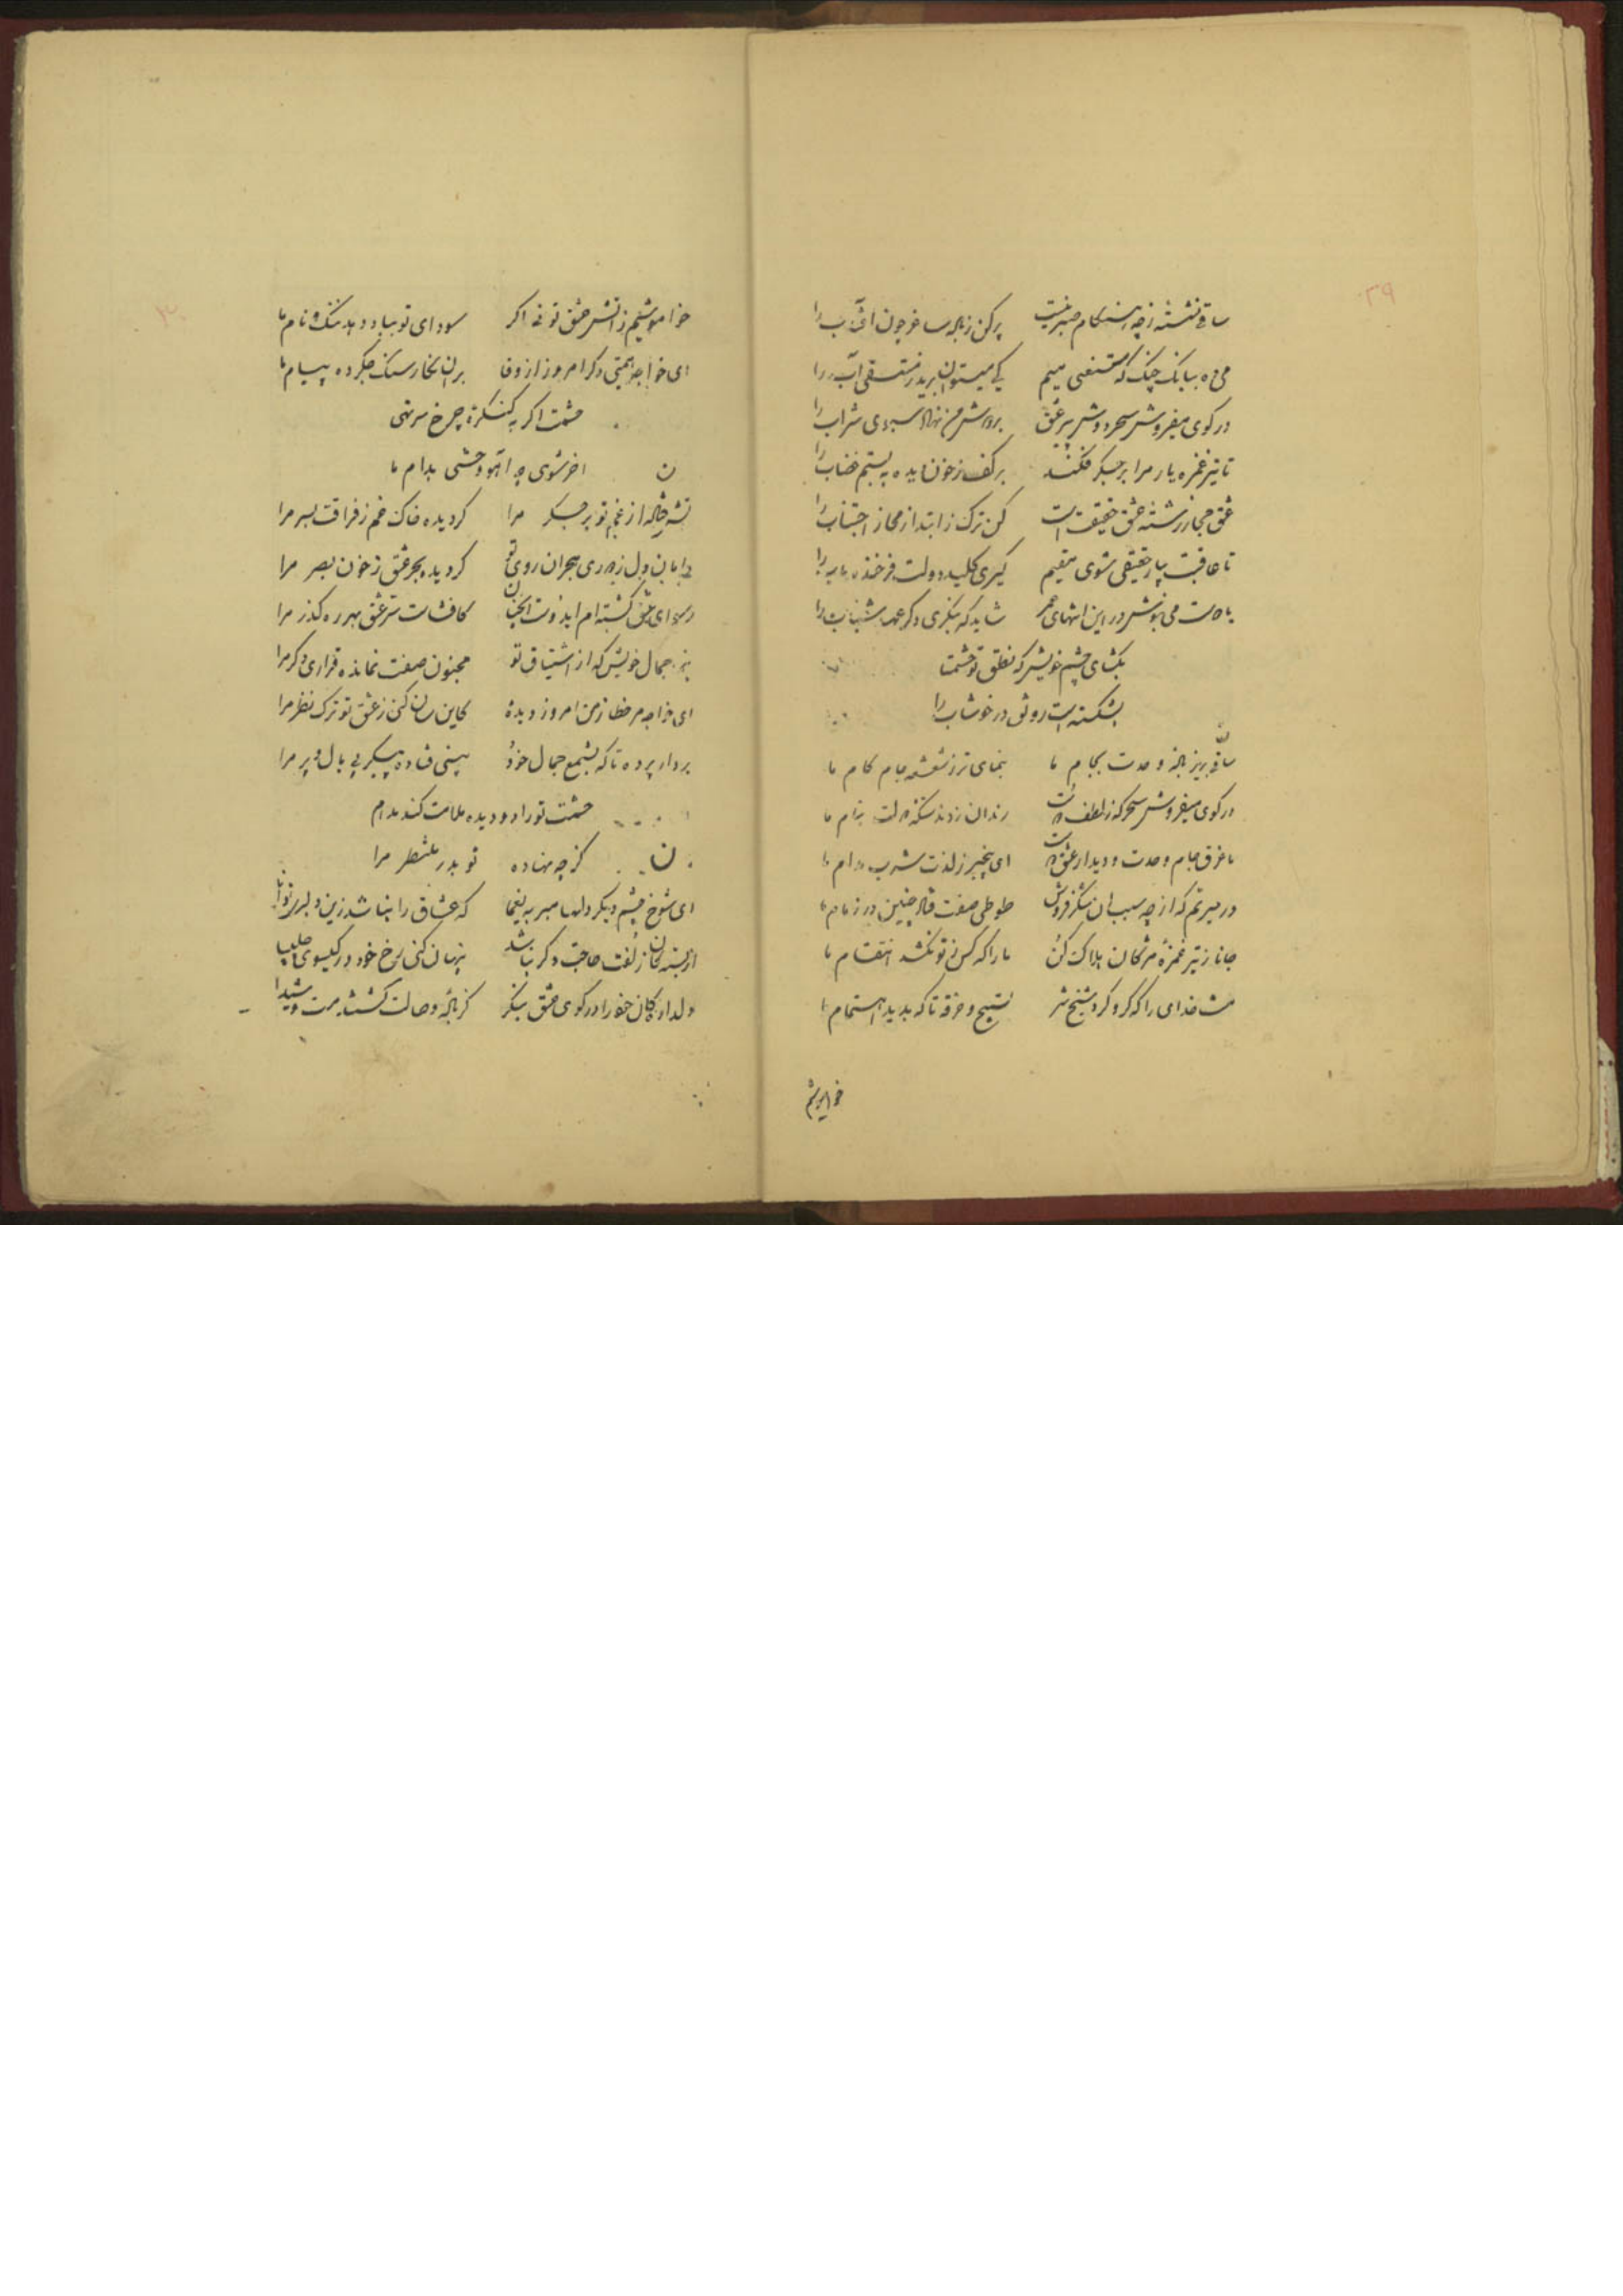 ۲۹
ساقی نشسته زچه هنگام صبر نیست پرکن ز باده ساغر چون آفتاب را
می ده ببانک چنک که مستسقی میم کی میتوان برید ز مستسقی آب را
در کوی میفروش سحر دوش پیر عشق بر دوش من نهاد سبوی شراب را
تا تیر غمزه یار مرا بر جکر فکند بر کف ز خون دیده به بستم خضاب را
عشق مجاز رشته عشق حقیقت است کن ترک ز ابتدا از مجاز اجتناب را
تا عاقبت بیار حقیقی شوی مقیم کیری کلید دولت فرخنده باب را
با دوست می بنوش در این انتهای عمر شاید که بنکری دکر عهد شباب را
بکشای چشم خویش که نطق تو حشمتا
بشکسته است رونق در خوشاب را
ساقی بریز باده وحدت بجام ما بنمای تر ز شعشعه جام کام ما
در کوی میفروش سحرکه ز لطف دوست رندان زدند سکه دولت بنام ما
ما غرق جام وحدت و دیدار عشق دوست ای بیخبر ز لذت شرب مدام ما
در حیرتم که از چه سبب ان شکرفروش طوطی صفت فتاد چنین در زمام ما
جانا ز تیر غمزه مژکان هلاک کن ما را که کس ز تو نکشد انتقام ما
منت خدای را که کرو کرد شیخ شهر تسبیح و خرقه تا که بدید اهتمام ما
خواموشیم
۳۰
خواموشیم ز اتش عشق تو نه اکر سودای تو بباد دهد ننک و نام ما
ای خواجه همتی دکر امروز از وفا بر ان نکار سنک جکر ده پیام ما
حشمت اکر به کنکره چرخ سر نهی
اخر شوی چه آهو وحشی بدام ما
ن
تیشه از غم تو بر جکر مرا کردیده خاک غم ز فراقت بسر مرا
دامان دل ز دوری هجران روی تو کردیده بحر عشق ز خون بصر مرا
رسوای عشق کشته ام ای دوست انچنان کافشاست سر عشق بهر ره کذر مرا
بنما جمال خویش که از اشتیاق تو مجنون صفت نمانده قراری دکر مرا
ای خواجه مر خطا ز من امروز دیدهٔ کاین سان کنی ز عشق تو ترک نظر مرا
بردار پرده تا که بشمع جمال خود بینی فتاده پیکر بی بال و پر مرا
حشمت تو را دو دیده ملامت کند مدام
کز چه نهاده تو بدر منتظر مرا
ن
ای شوخ چشم دیکر دلها مبر به یغما که عشاق را نباشد زین دلبری توانا
از بسته کان زلفت حاجت دکر نباشد پنهان کنی رخ خود در کیسوی چلیپا
دلدادکان خود را در کوی عشق بنکر کز باده وصالت کشتند مست و شیدا